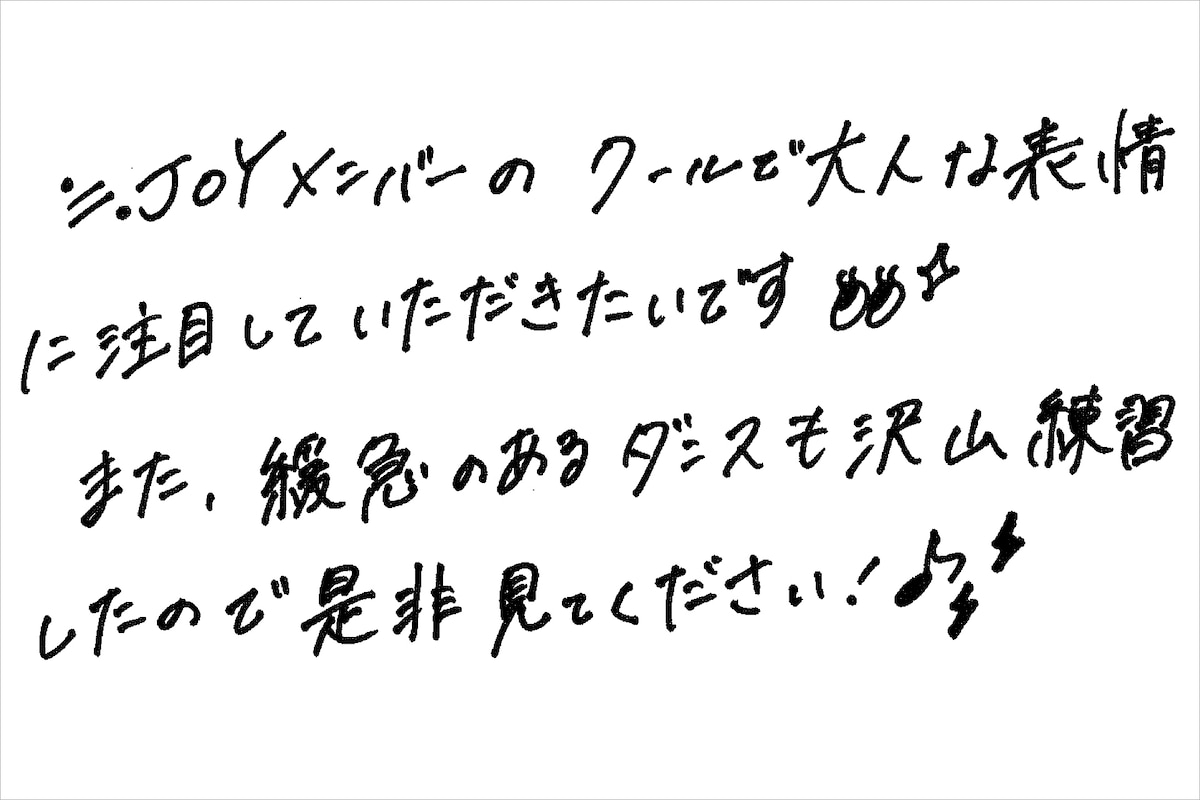 ≒JOYメンバーの クールで大人な表情
に注目していただきたいです👀☆
また、緩急のあるダンスも沢山練習
したので是非見てください!♪⚡⚡